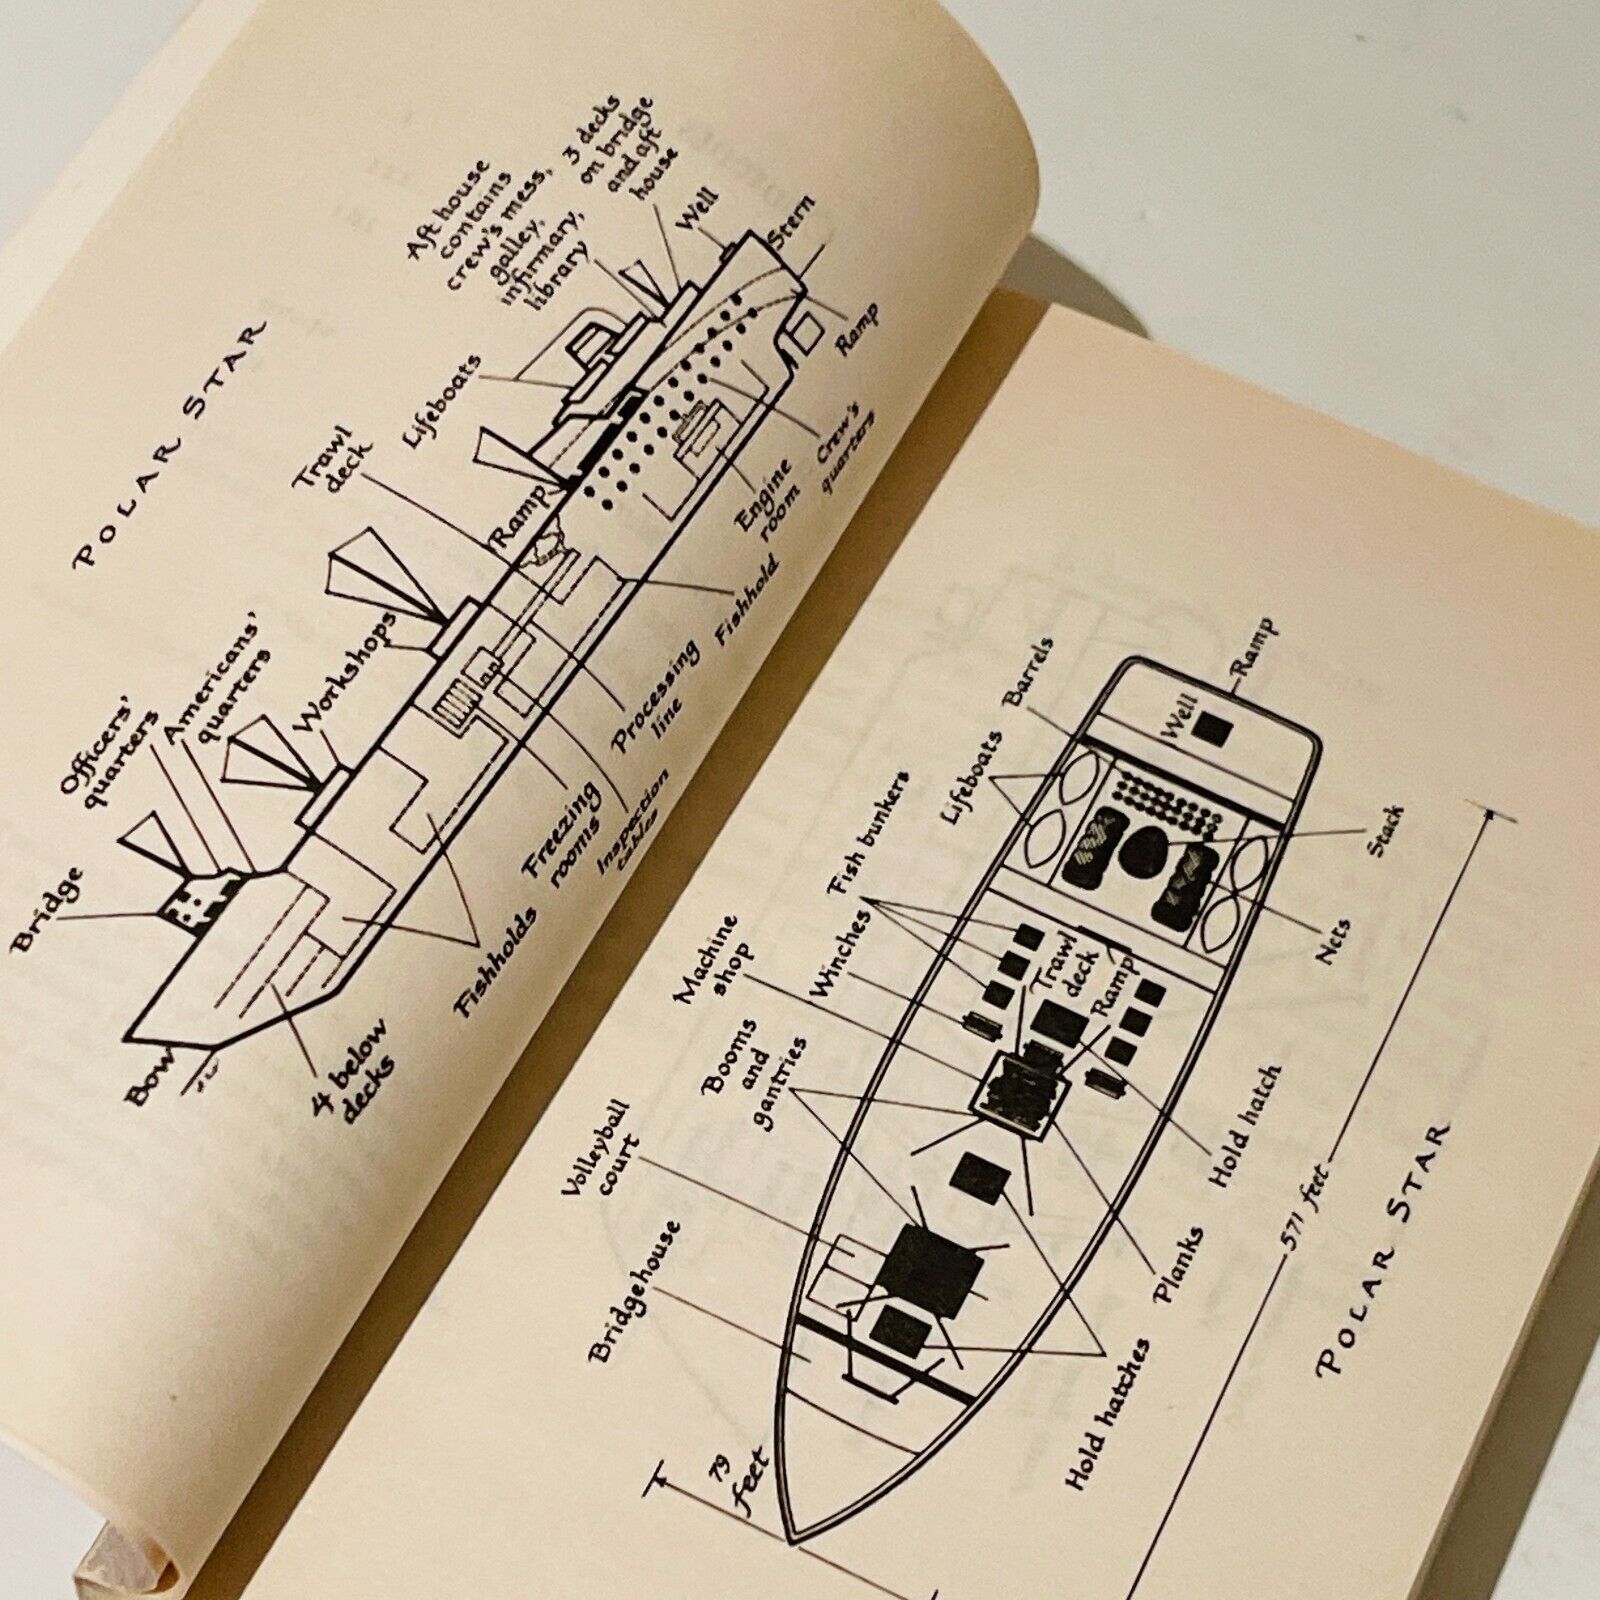 POLAR STAR
Aft house
contains
crew's mess,
galley,
infirmary,
library
3 decks
on bridge
and aft
house
Well
Stern
Ramp
Lifeboats
Trawl
deck
Ramp
Crew's
quarters
Engine
room
Fishhold
Workshops
Americans'
quarters
Officers'
quarters
Bridge
Processing
line
Inspection
tables
Freezing
rooms
Fishholds
4 below
decks
Bow
Ramp
Well
Barrels
Lifeboats
Stack
Fish bunkers
Nets
Winches
Trawl
deck
Ramp
Machine
shop
Booms
and
gantries
Hold hatch
Volleyball
court
Planks
Bridgehouse
Hold hatches
79
feet
571 feet
POLAR STAR